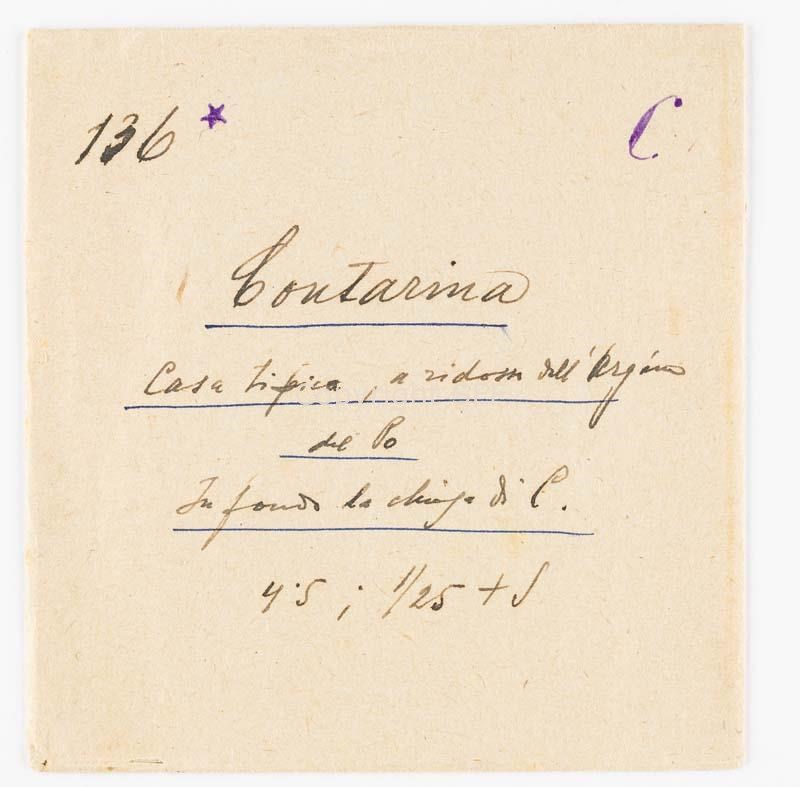 136 * C
Contarina
Casa tipica, a ridosso dell'Argine
del Po
In fondo la chiesa di C.
4.5; 1/25 + S